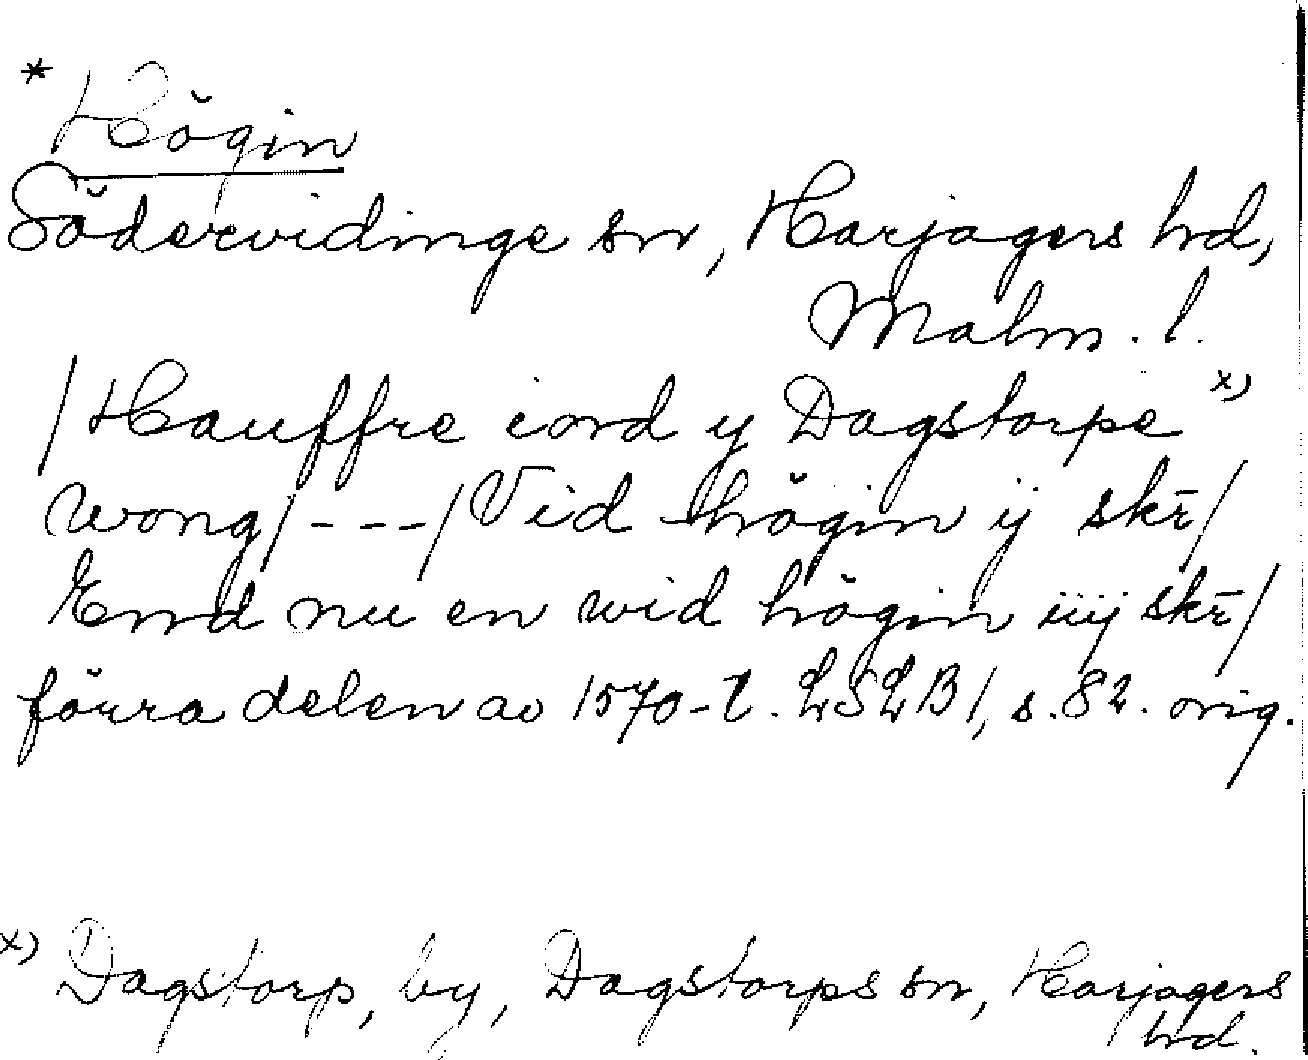 * Högin
Södervidinge sn, Harjagers hd,
Malm. l.
/Hauffre iord y Dagstorpe x)
wong/---/Vid högin ij skr̄/
End nu en wid högin iiij skr̄/
förra delen av 1570-t. LSLB1, s. 82. orig.
x) Dagstorp, by, Dagstorps sn, Harjagers
hd.